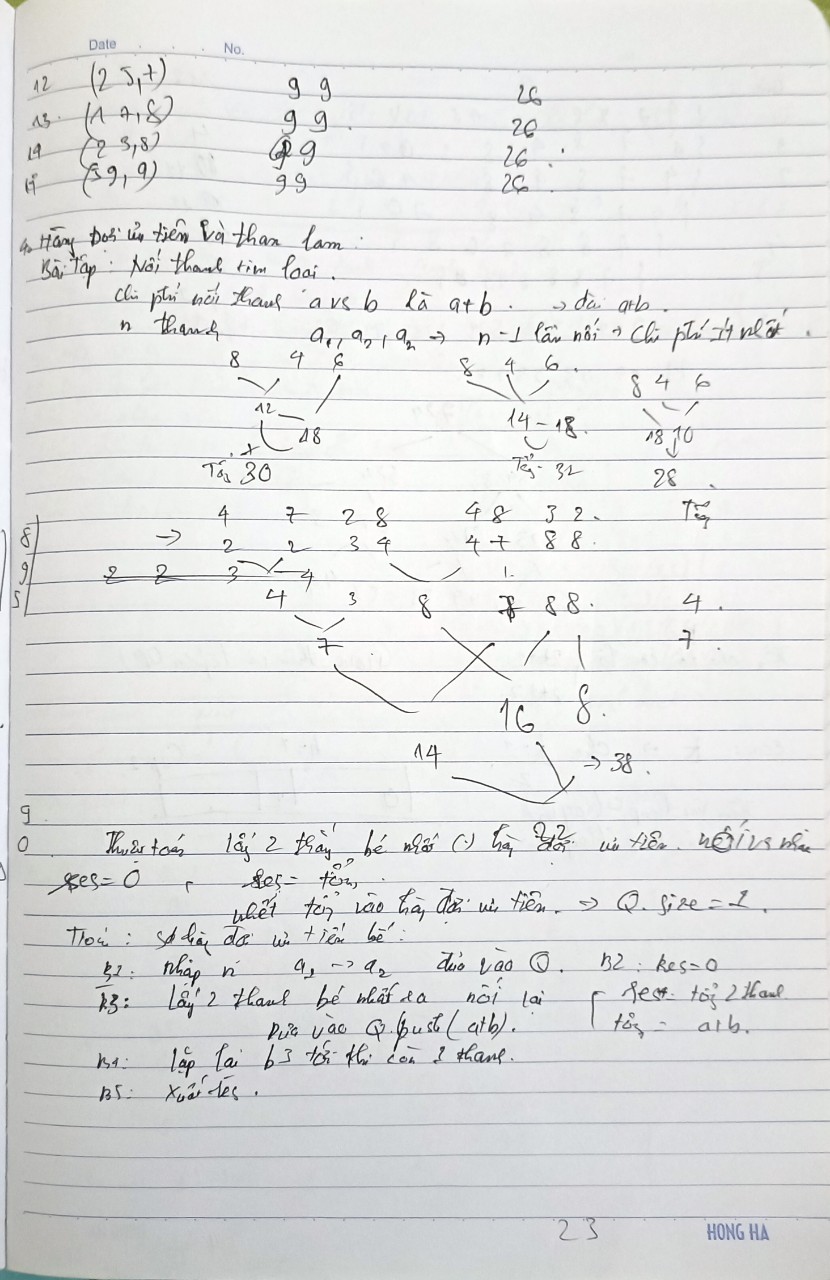 Date No.
12 (2 5,7) 9 9 26
13 (1 7,8) 9 9 26
14 (2 3,8) 9 26
(39, 9) 9 9 26
Hàng Đợi ưu tiên và tham lam:
Bài Tập: Nối thanh kim loại.
chi phí nối thanh a vs b là a+b. → dài a+b.
n thanh a₁, a₂, a₂ → n-1 lần nối → Chi phí ít nhất.
8 4 6 8 4 6 8 4 6
12 18 14 - 18 18 10
Tổng 30 Tổng 32 28
4 7 2 8 4 8 3 2 Tổng
8 → 2 2 3 4 4 7 8 8
9 2 2 3 4
5 4 3 8 8 8 4
7 7
16 8
14 → 38
9
0 Thuật toán lấy 2 thằng bé nhất hàng đợi ưu tiên.
res=0, res= tổng
nhét tổng vào hàng đợi ưu tiên. → Q.size=1.
sd hàng đợi ưu tiên bé:
B1: nhập n a₁ → a₂ đưa vào Q. B2: Res=0
B3: Lấy 2 thanh bé nhất ra nối lại tổng 2 thanh
Đưa vào Q.push(a+b). tổng = a+b.
B4: lặp lại b3 tới khi còn 1 thanh.
B5: Xuất res.
23 HONG HA